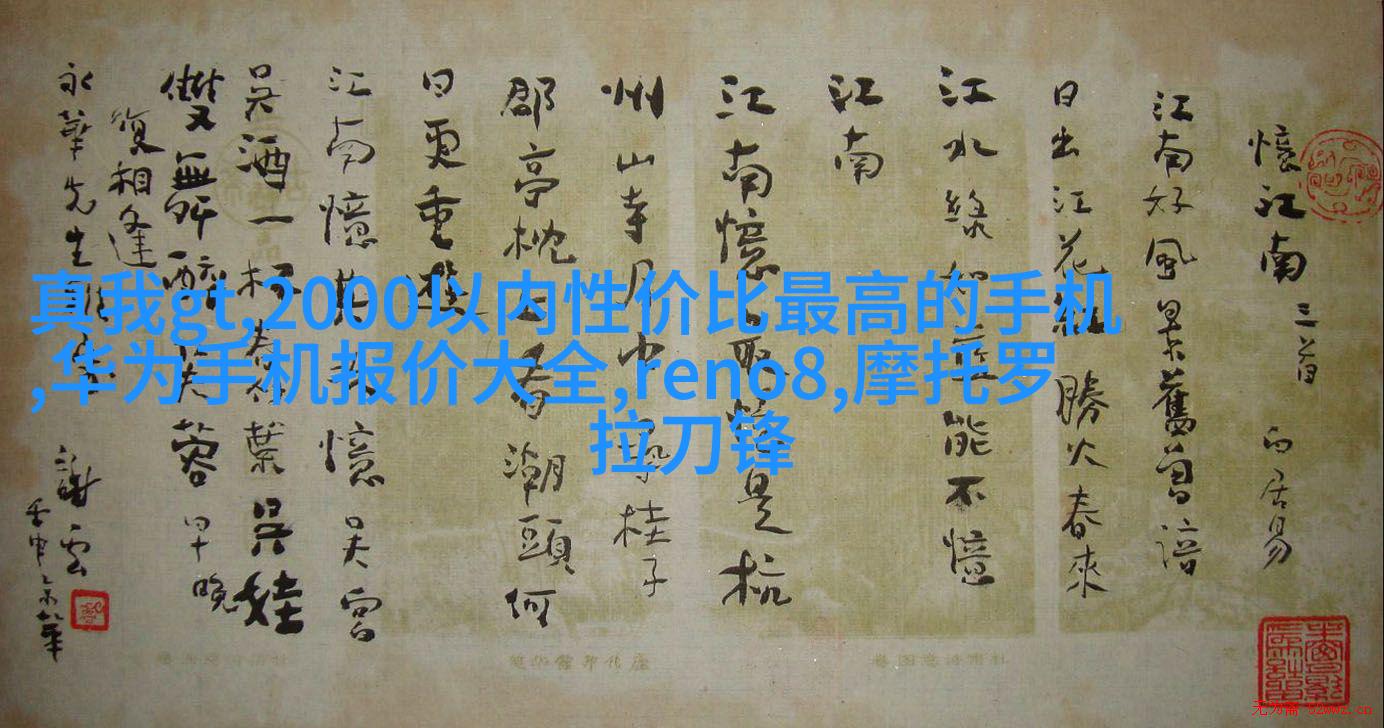 憶江南 三首 白居易
江南好風景舊曾諳
日出江花紅勝火春來
江水綠如藍能不憶
江南
江南憶最憶是杭
州山寺月中尋桂子
郡亭枕上看潮頭何
日更重遊
江南憶其次憶吳宮
吳酒一杯春竹葉吳娃
雙舞醉芙蓉早晚
復相逢
永華先生
謝雲
真我gt,2000以内性价比最高的手机
,华为手机报价大全,reno8,摩托罗
拉刀锋